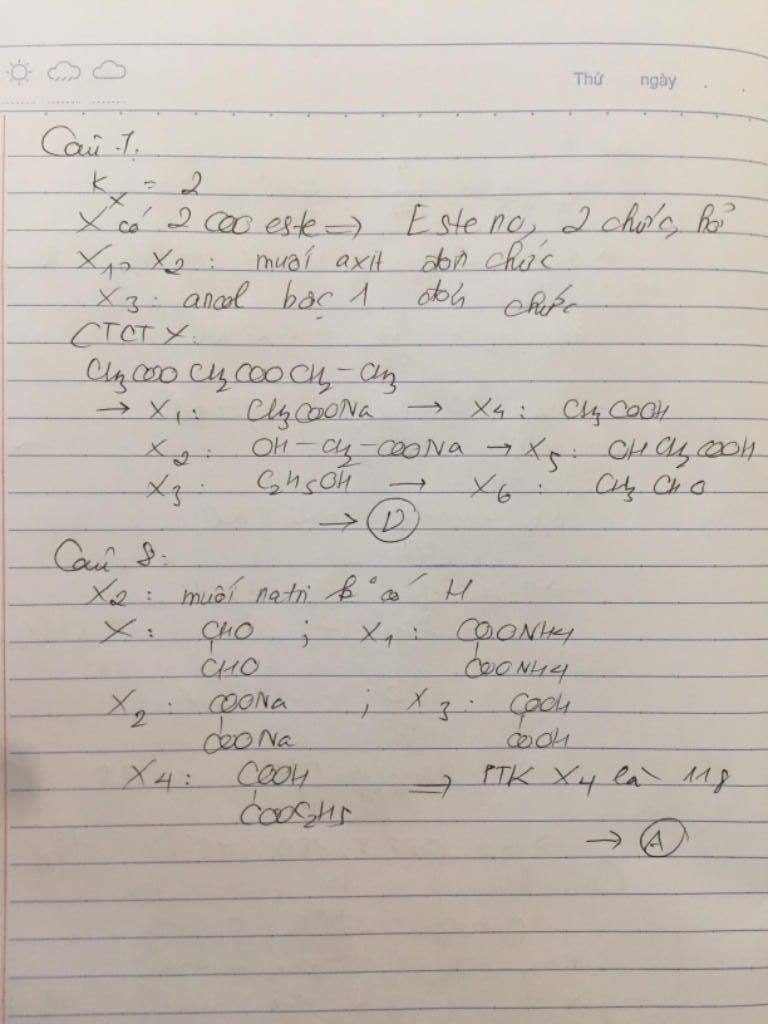 Thứ ngày
Câu 7.
Kx = 2
X có 2 COO este => Este no, 2 chức, hở
X1, X2: muối axit đơn chức
X3: ancol bậc 1 đơn chức
CTCT X:
CH3COO CH2COOCH2-CH3
→ X1: CH3COONa → X4: CH3COOH
X2: OH-CH2-COONa → X5: OHCH2COOH
X3: C2H5OH → X6: CH3CHO
→ D
Câu 8:
X2: muối natri k° có H
X: CHO ; X1: COONH4
CHO COONH4
X2: COONa ; X3: COOH
COONa COOH
X4: COOH => PTK X4 là 118
COOC2H5
→ A